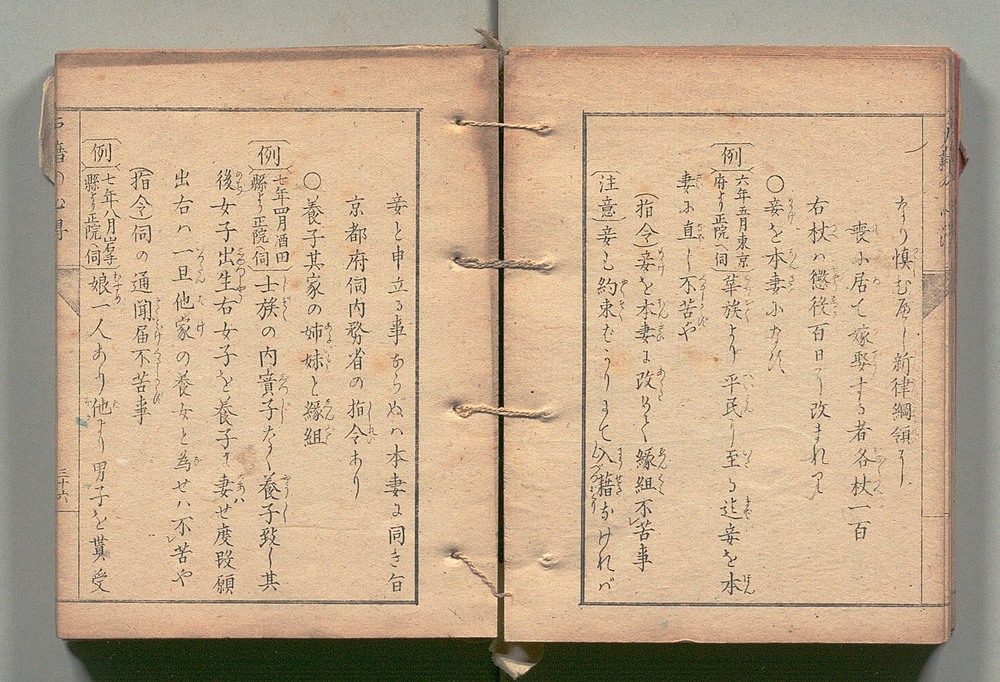 なり慎むべし新律綱領に
喪に居て嫁娶する者各杖一百
右杖ハ懲役百日に改まれり
〇妾を本妻に
例 六年五月東京府より正院へ伺 華族より平民に至る迄妾を本
妻に直し不苦や
(指令)妾を本妻に改め 縁組不苦事
(注意)妾も約束ばかりにて入籍なければ
妾と申立る事ならぬハ本妻に同き旨
京都府伺内務省の指令あり
〇養子其家の姉妹と縁組
例 七年四月酒田縣より正院へ伺 士族の内實子なく養子致し其
後女子出生右女子を養子に妻せ度段願
出右ハ一旦他家の養女と為せハ不苦や
(指令)伺の通聞届不苦事
例 七年八月岩手縣より正院へ伺 娘一人あり他より男子を貰受
三十六